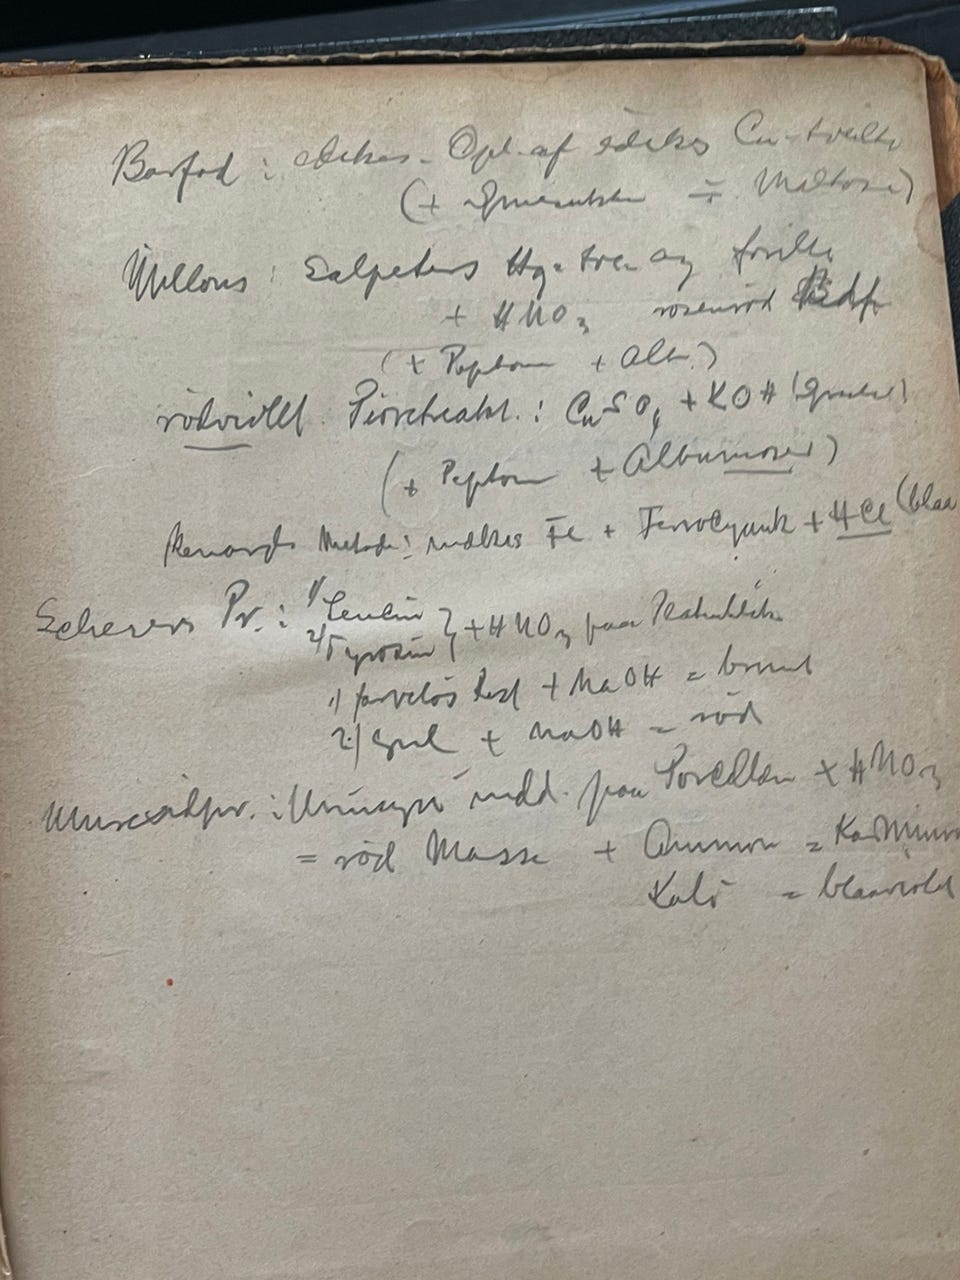 Barfod : edikes. Opl. af edikes Cu-tveilte
(+ Druesukker ÷ Maltose)
Millons : Salpeters Hg-tve- og forilte
+ HNO3 rosenröd Bdf
(+ Pepton + Alb.)
rödviolet Biuretreakt. : CuSO4 + KOH
(+ Pepton + Albumoser)
Metode : maskes Fe + Ferrocyank + HCl (blaa
Scherers Pr. : 1/ Leucin
2/ Tyrosin } + HNO3 paa Platinblik
1/ farvelös Rest + NaOH = brunt
2/ gul + NaOH = röd
Murexidpr. : Urinsyre indd. paa Porcellæn + HNO3
= röd Masse + Ammon =
Kali = blaaviolet